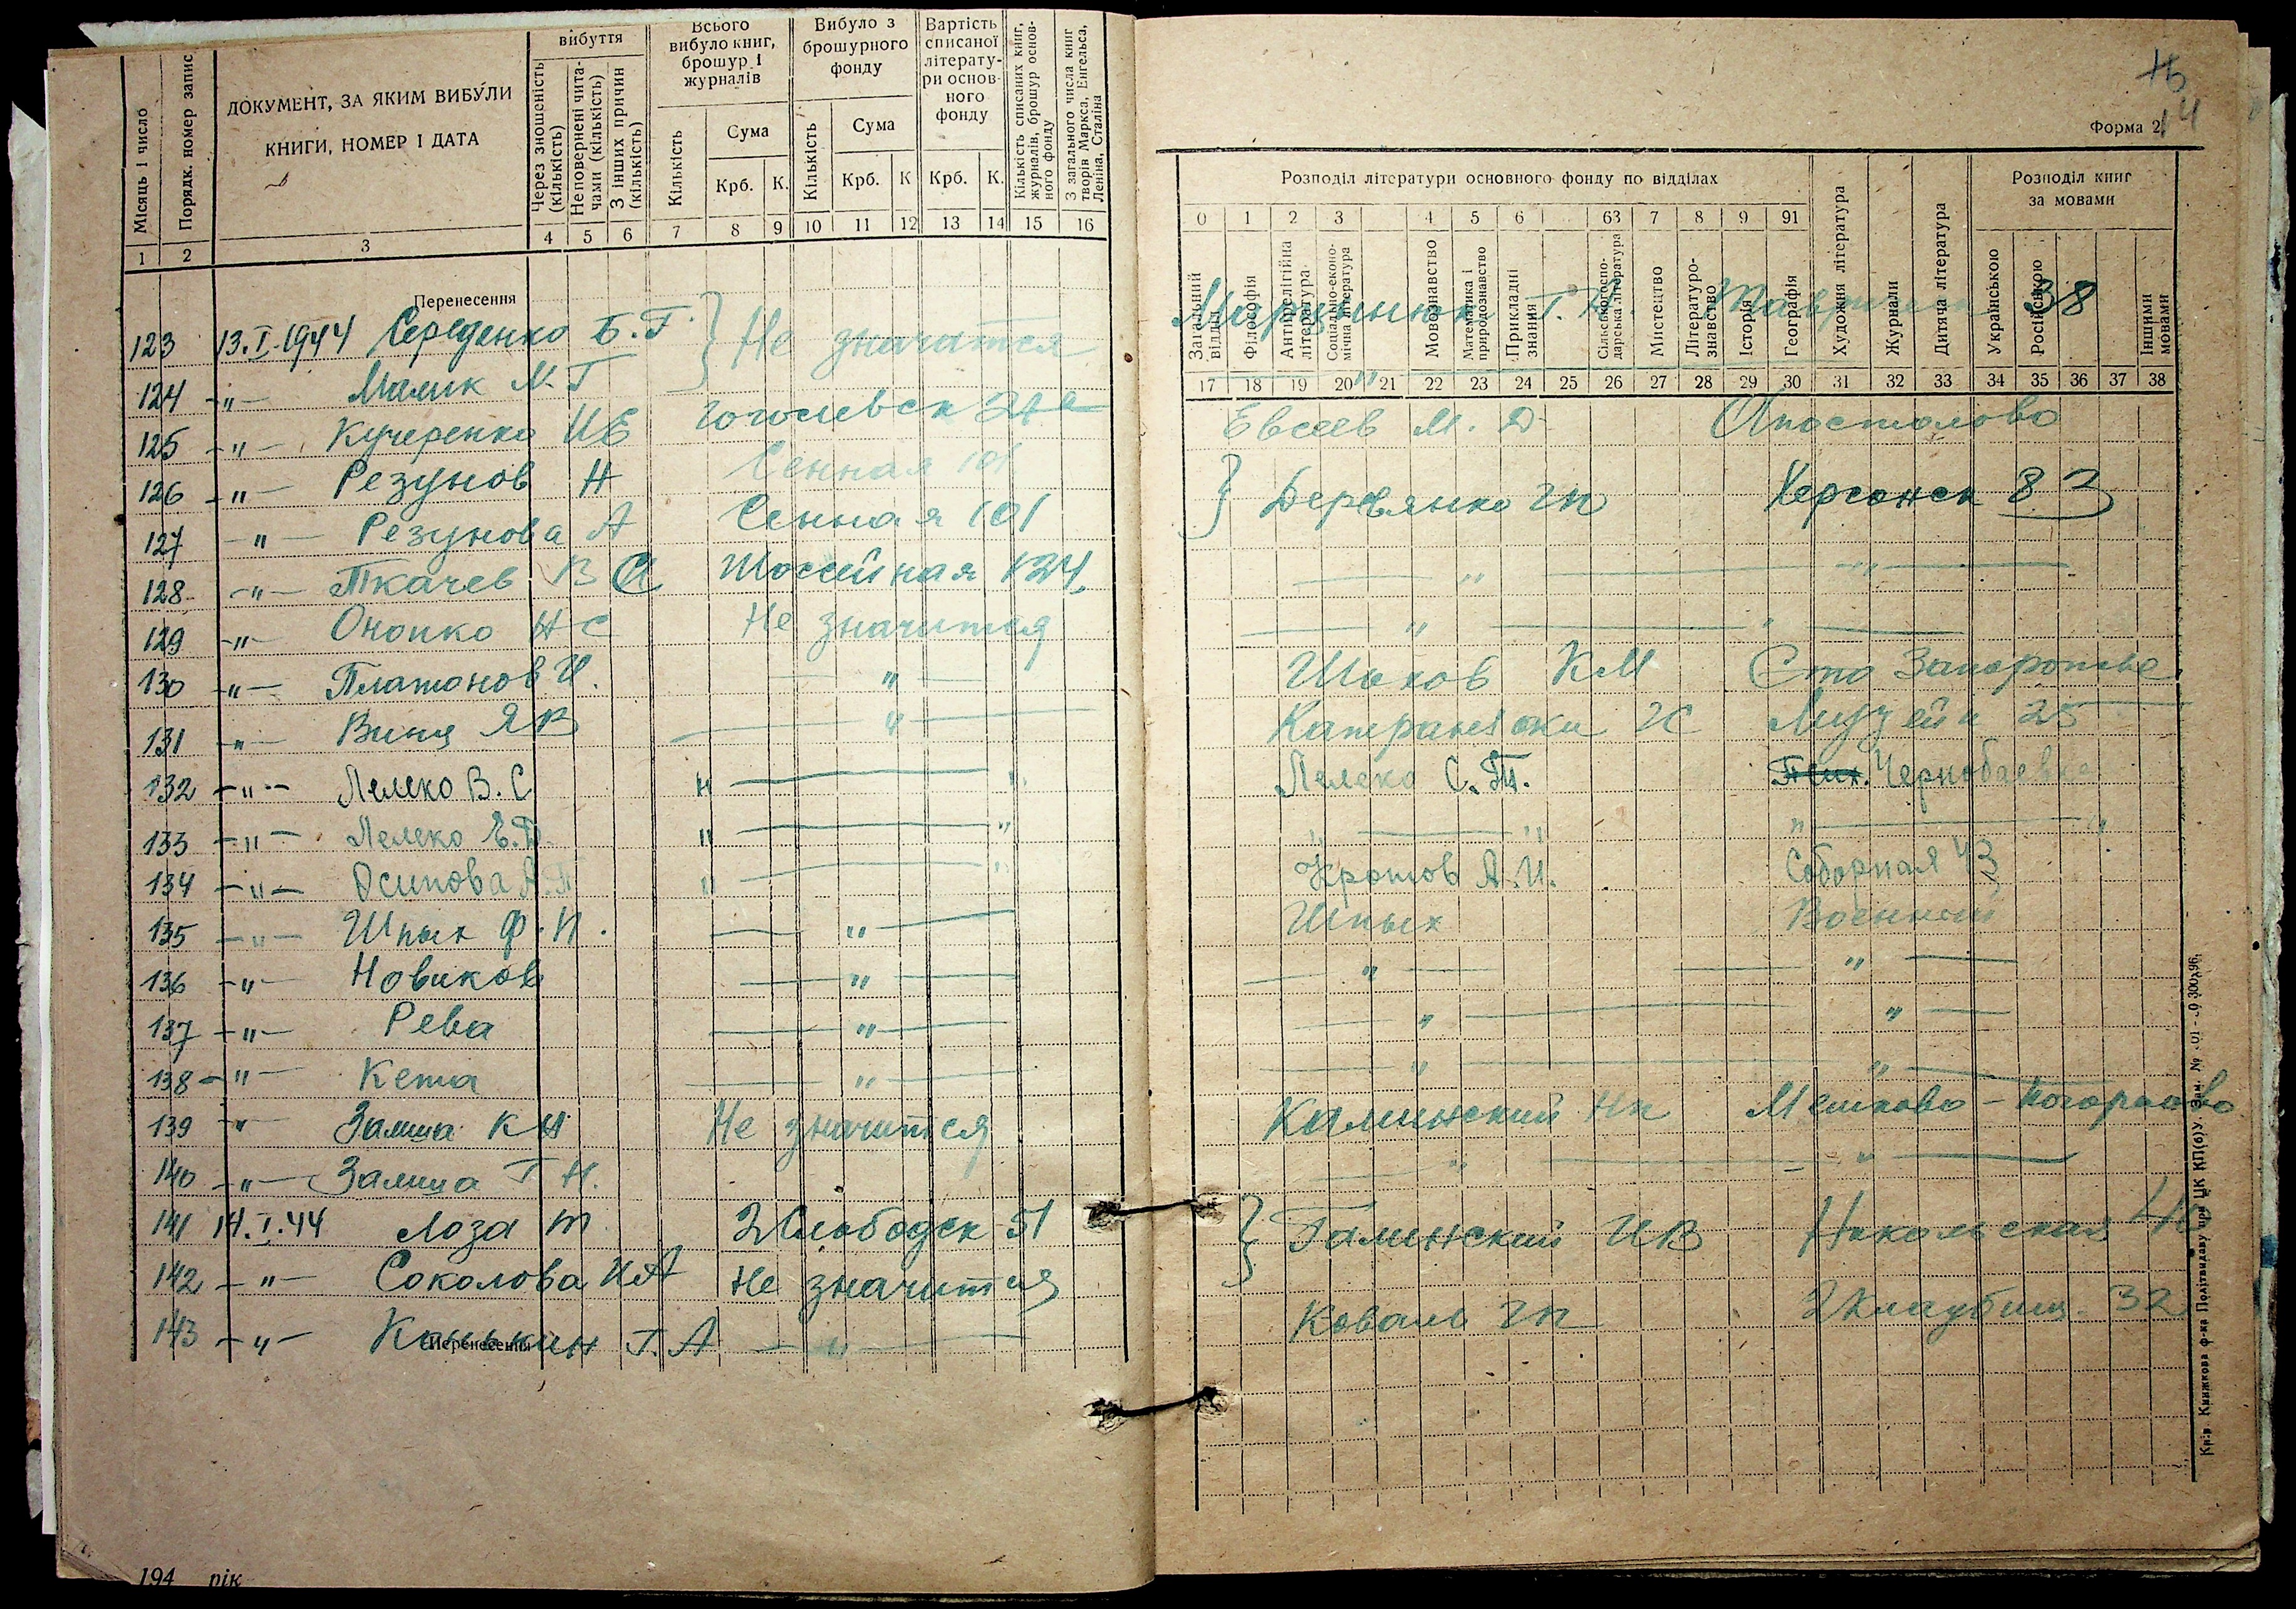 Місяць і число
Порядк. номер запис
ДОКУМЕНТ, ЗА ЯКИМ ВИБУЛИ
КНИГИ, НОМЕР І ДАТА
вибуття
Через зношеність (кількість)
Неповернені чита-
чами (кількість)
З інших причин
(кількість)
Всього
вибуло книг,
брошур і
журналів
Кількість
Сума
Крб. К.
Вибуло з
брошурного
фонду
Кількість
Сума
Крб. К
Вартість
списаної
літерату-
ри основ-
ного
фонду
Крб. К.
Кількість списаних книг,
журналів, брошур основ-
ного фонду
З загального числа книг
творів Маркса, Енгельса,
Леніна, Сталіна
1 2 3 4 5 6 7 8 9 10 11 12 13 14 15 16
Перенесення
123 13.I.1944 Середенко Б.Г. } Не значатся
124 -"- Малик М.Т
125 -"- Кучеренко И Е Гоголевск
126 -"- Резунов Н Сенная 101
127 -"- Резунова А Сенная 101
128 -"- Ткачев В А Шоссейная 124
129 -"- Онопко Н С Не значится
130 -"- Платонов И. — " —
131 -"- Винц Я В — " —
132 -"- Лелеко В. С " — "
133 -"- Лелеко Е. " — "
134 -"- Осипова " — "
135 -"- Шпых Ф. И. — " —
136 -"- Новиков — " —
137 -"- Рева — " —
138 -"- Кета — " —
139 -"- Залиша К Н Не значится
140 -"- Залиша Т Н.
141 14.I.44 Лоза М 2 Слободск 51
142 -"- Соколова И А Не значится
143 -"- Канькин Т. А — " —
Перенесення
194 рік
14
Форма 2
Розподіл літератури основного фонду по відділах
Розподіл книг
за мовами
0 1 2 3 4 5 6 63 7 8 9 91
Загальний
відділ
Філософія
Антирелігійна
література
Соціально-еконо-
мічна література
Мовознавство
Математика і
природознавство
Прикладні
знання
Сільськогоспо-
дарська література
Мистецтво
Літературо-
знавство
Історія
Географія
Художня література
Журнали
Дитяча література
Українською
Російською
Іншими
мовами
17 18 19 20 21 22 23 24 25 26 27 28 29 30 31 32 33 34 35 36 37 38
Мартынюк Т. 38
"
Евсеев М. Д Апостолово
} Деревянко Г П Херсонск 83
— " — — " —
— " — "
Шахов К М Запорожье
И С Музейн 25
Лелеко С. Чернобаевка
" — " " — "
Кротов А. И. Соборная 43
Шпых Военный
— " — — " —
— " — " —
— " — " —
Калинский Н П Мешково-Погорелово
— " — — " —
} Галинский И В Никольская
Коваль Г П 32
Київ Книжкова ф-ка Політвидаву при ЦК КП(б)У Зам. №